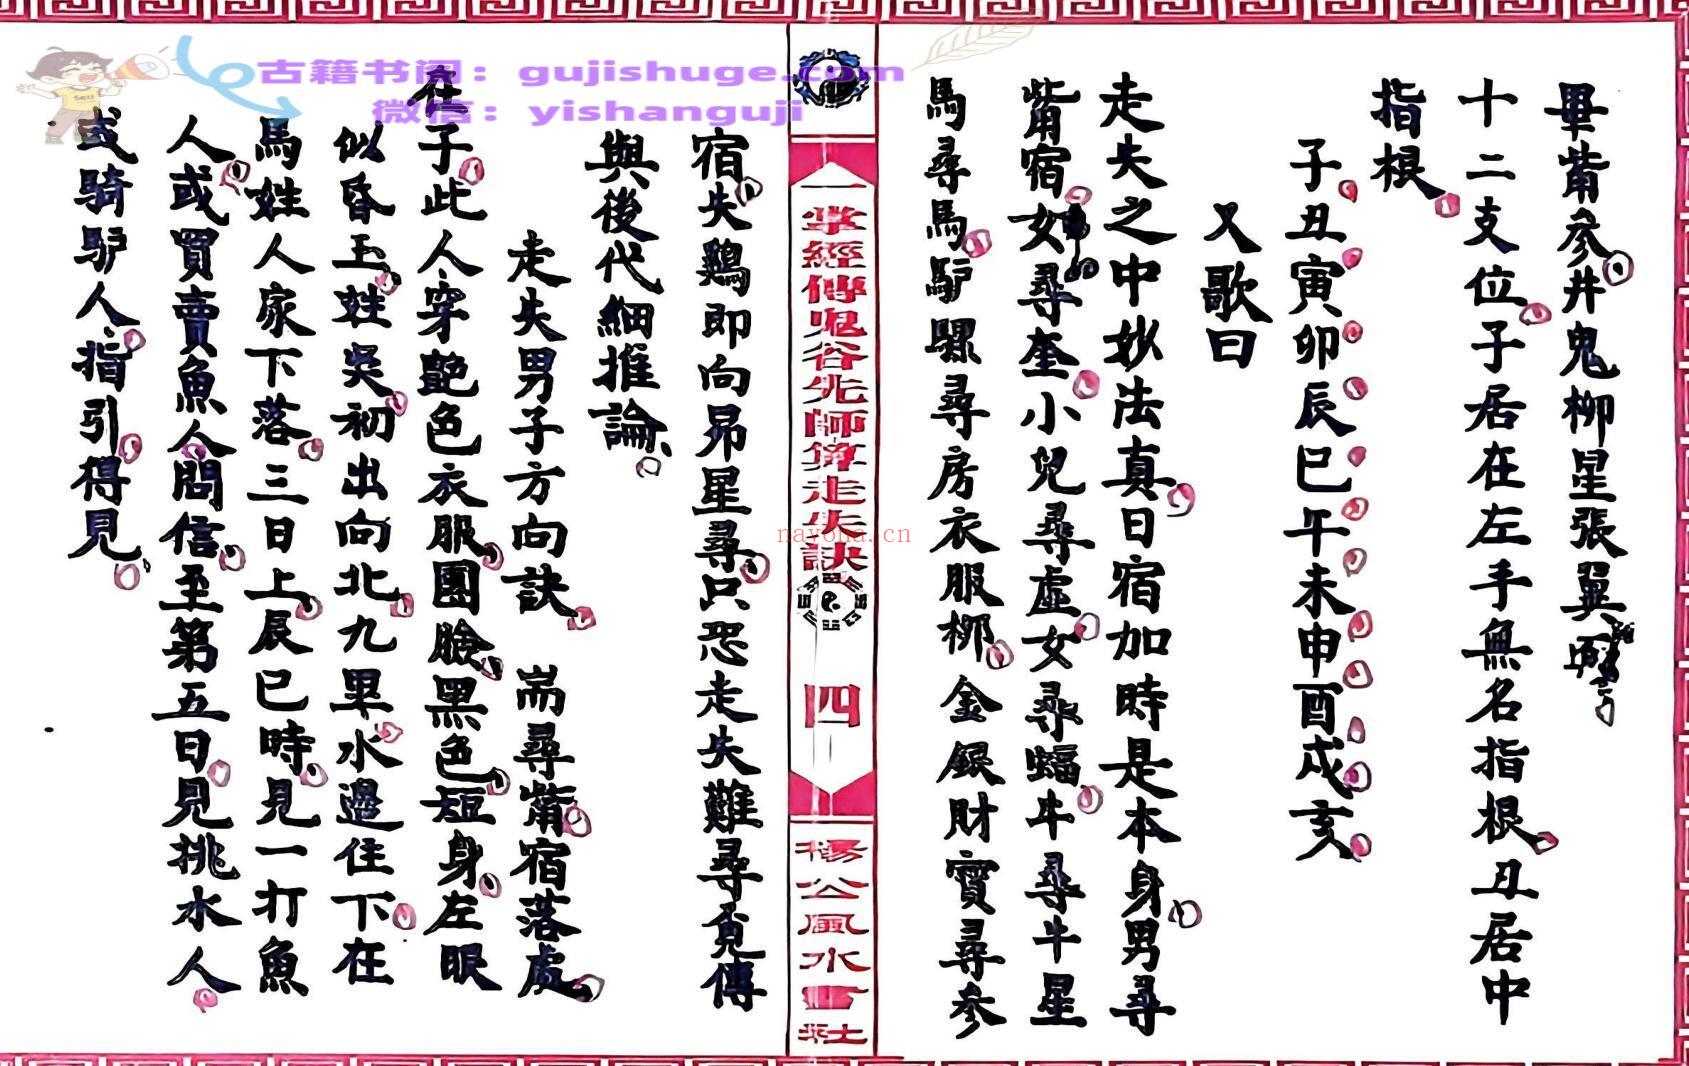 畢觜參井鬼柳星張翼
十二支位子居在左手無名指根丑居中
指根
子丑寅卯辰巳午未申酉戌亥
又歌曰
走失之中妙法真日宿加時是本身男尋
觜宿女尋奎小兒尋虛女尋蝠牛尋牛星
馬尋馬馿騾尋房衣服柳金銀財寶尋參
一掌經傳鬼谷先師算走失訣
四
楊公風水書社
宿失鷄即向昴星尋只恐走失難尋覓傳
與後代細推論
走失男子方向訣 耑尋觜宿落處
在子此人穿艷色衣服團臉黑色短身左眼
似昏王姓吳初出向北九里水邊住下在
馬姓人家下落三日上辰巳時見一打魚
人或買賣魚人問信至第五日見挑水人
或騎馿人指引得見
古籍书阁：gujishuge.com
微信：yishanguji
nayona.cn